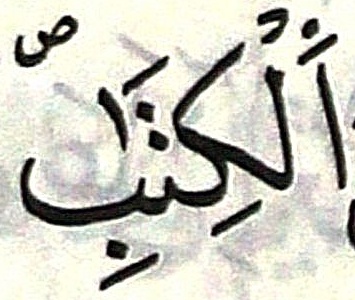 اَلْكِتٰبِ ص